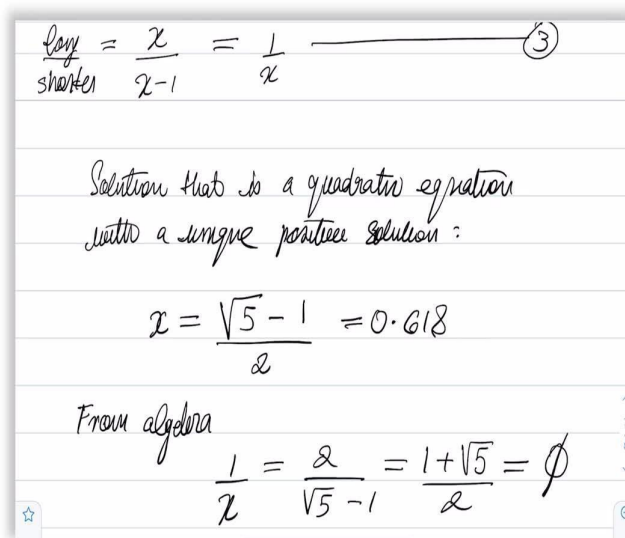 long/shorter = x/(x-1) = 1/x ——— ③
Solution that is a quadratic equation
with a unique positive solution:
x = (√5 - 1)/2 = 0.618
From algebra
1/x = 2/(√5 - 1) = (1+√5)/2 = ϕ